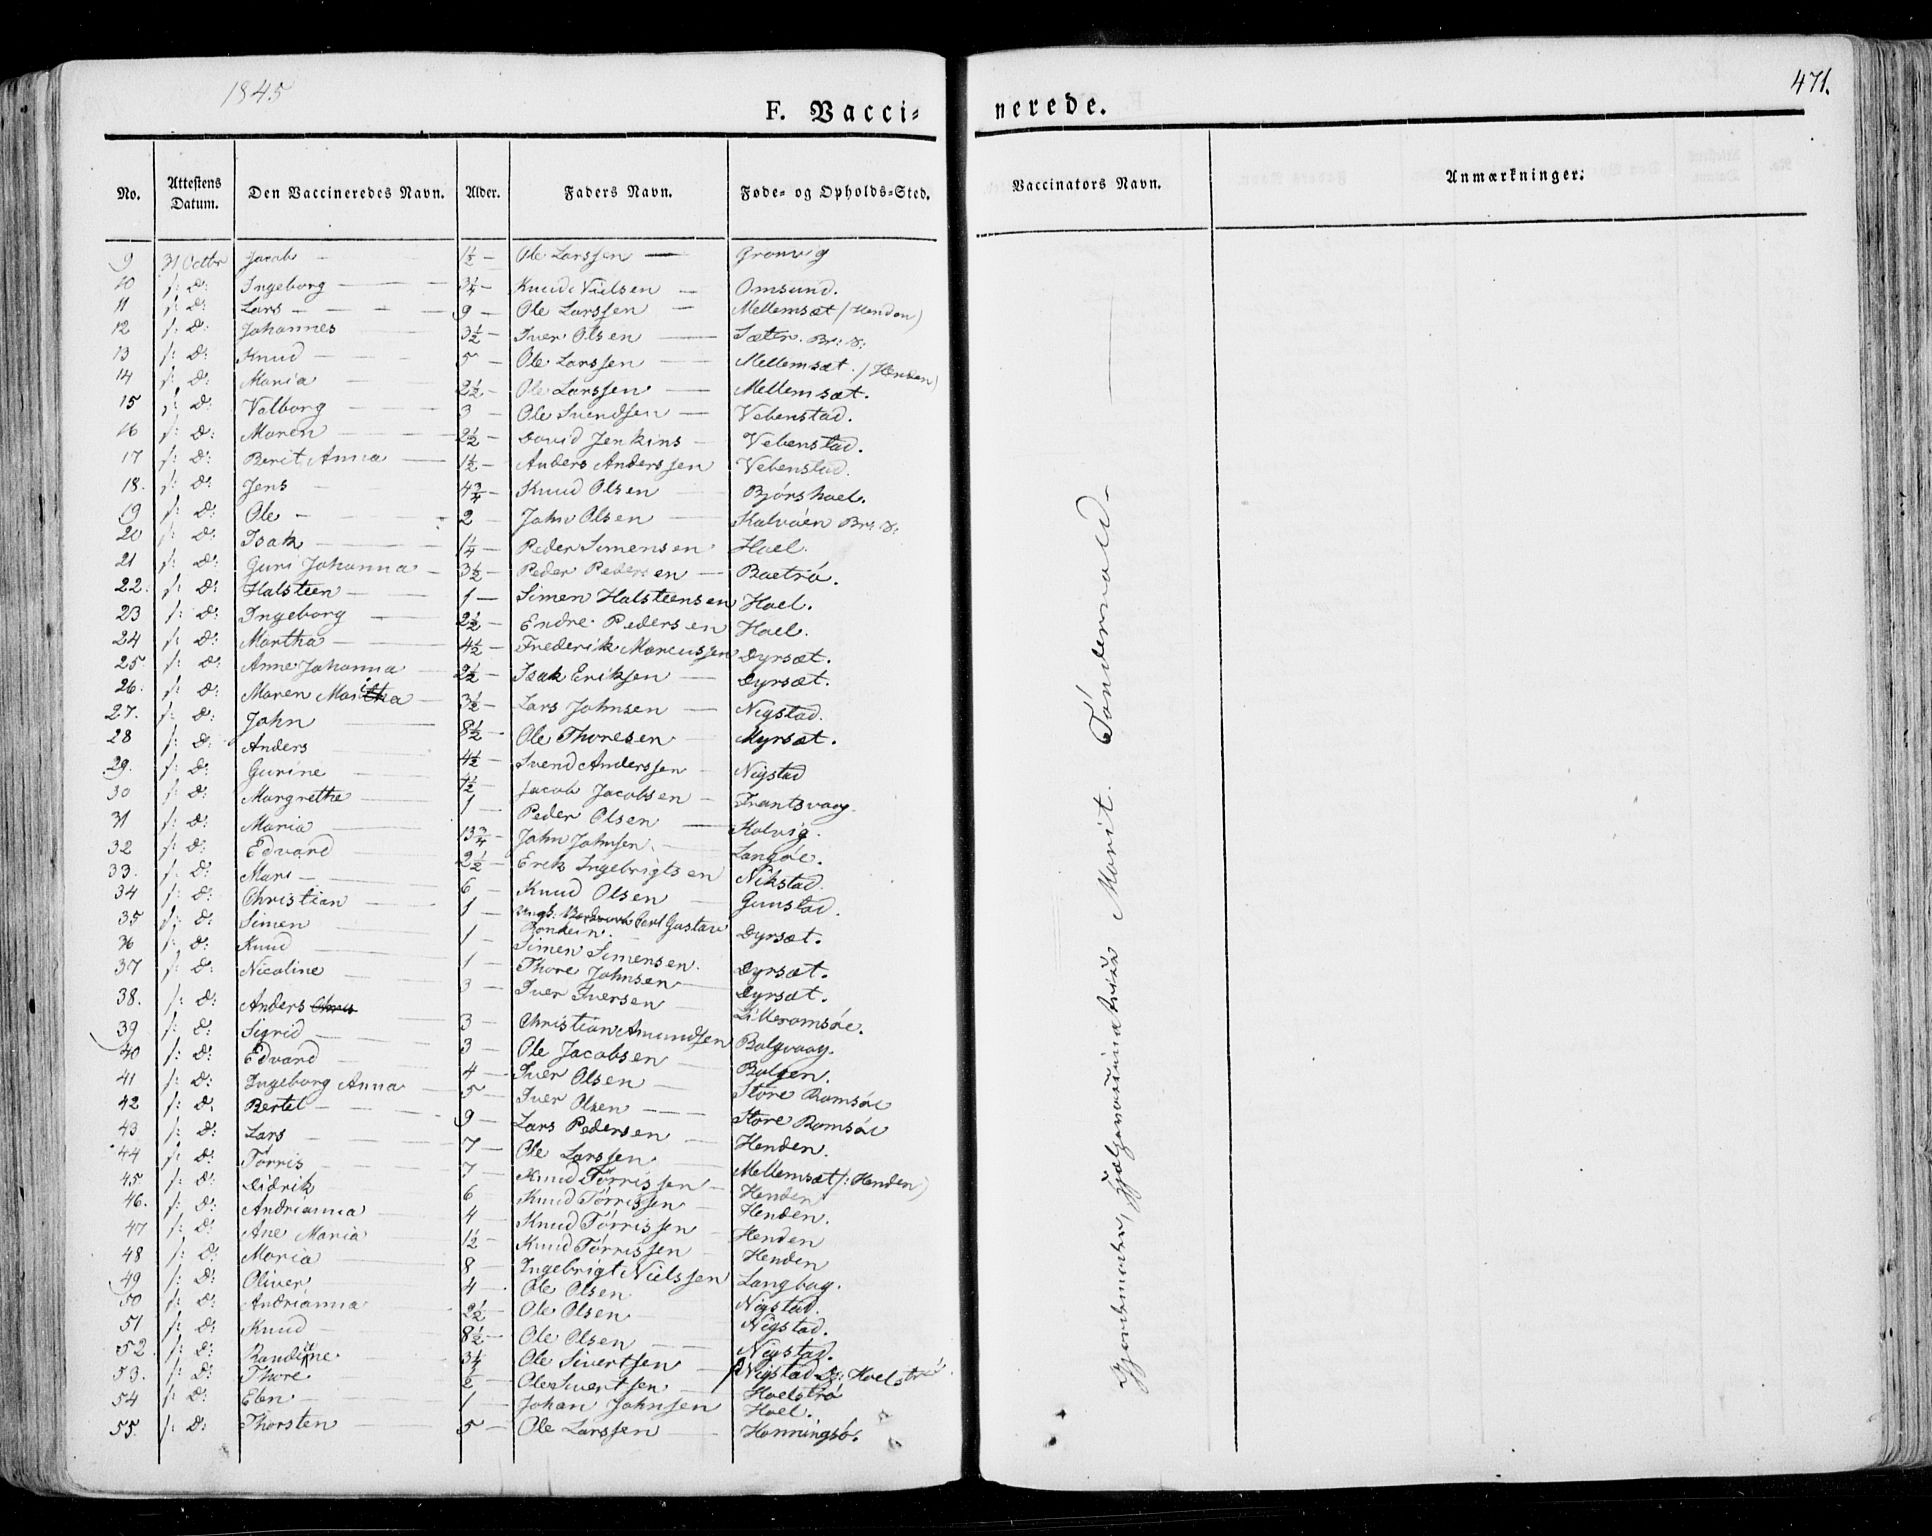 1845
471.
F. Vacci-
nerede.
No. Attestens Datum. Den Vaccineredes Navn. Alder. Faders Navn. Føde- og Opholds-Sted. Vaccinators Navn. Anmærkninger:
9 31 Octbr Jacob 1½ Ole Larssen Grønvig
10 s: D: Ingeborg 3¼ Knud Nielsen Omsund.
11 s: D: Lars 9 Ole Larssen Mellemsæt /Henden)
12 s: D: Johannes 3½ Iver Olsen Sæter. Br: S:
13 s: D: Knud 5 Ole Larssen Mellemsæt. /Henden)
14 s: D: Maria 2½ Ole Larssen Mellemsæt.
15 s: D: Valborg 3 Ole Svendsen Vebenstad.
16 s: D: Maren 2½ David Jenkins Vebenstad.
17 s: D: Berit Anna 1½ Anders Anderssen Vebenstad.
18. s: D: Jens 4¾ Knud Olsen Bjørshoel.
19 s: D: Ole 2 John Olsen Kalvøen Br: S:
20 s: D: Isak 1¼ Peder Simensen Hoel.
21 s: D: Guri Johanna 3½ Peder Pedersen Boetrø.
22. s: D: Halsteen 1 Simen Halsteensen Hoel.
23 s: D: Ingeborg 2½ Endre Pedersen Hoel.
24 s: D: Martha 4½ Frederik Marcussen Dyrsæt.
25. s: D: Anne Johanna 2½ Isak Eriksen Dyrsæt.
26. s: D: Maren Maritha 3½ Lars Johnsen Nigstad.
27. s: D: John 8½ Ole Thoresen Myrsæt.
28 s: D: Anders 4½ Svend Anderssen Nigstad
29. s: D: Gurine 1½ Jacob Jacobsen Frantsvaag.
30 s: D: Margrethe 1 Peder Olsen Kolvig.
31 s: D: Maria 13¾ John Johnsen. Langøe.
32 s: D: Edvard 2½ Erik Ingebrigtsen Nikstad.
33. s: D: Mari 6 Knud Olsen Gunstad.
34 s: D: Christian 1 Ungk. Carl Gustav Dyrsæt.
35 s: D: Simen 1 Simen Simensen. Dyrsæt.
36 s: D: Knud 1 Thore Johnsen Dyrsæt.
37 s: D: Nicoline 3 Iver Iversen Lilleromsøe.
38. s: D: Anders Chris 3 Christian Amundsen Bolgvaag.
39 s: D: Sigrid 3 Ole Jacobsen Bolgen.
40 s: D: Edvard 4 Iver Olsen Store Romsøe
41 s: D: Ingeborg Anna 5 Iver Olsen Store Romsøe
42 s: D: Bertel 9 Lars Pedersen Henden.
43 s: D: Lars 7 Ole Larssen Mellemsæt /: Henden)
44 s: D: Tørris 7 Knud Tørrissen Henden
45 s: D: Didrik 6 Knud Tørrissen Henden.
46. s: D: Andrianna 4 Knud Tørrissen Henden
47 s: D: Ane Maria 1½ Knud Tørrissen Henden
48 s: D: Maria 8 Ingebrigt Nielssen Langbog.
49 s: D: Oliver 4 Ole Olsen Nigstad.
50 s: D: Andrianna 2½ Ole Olsen Nigstad.
51 s: D: Knud 8½ Ole Olsen Nigstad.
52. s: D: Randine 3¼ Ole Sivertsen Nigstad Hoelstrø
53. s: D: Thore ½ Ole Sivertsen Hoelstrø
54 s: D: Elen 1 Johan Johnsen Hoel.
55. s: D: Thorsten 5 Ole Larssen Honningsø.
Gjordemoder, Hjælpevaccinatrice Marit Tøndervold.